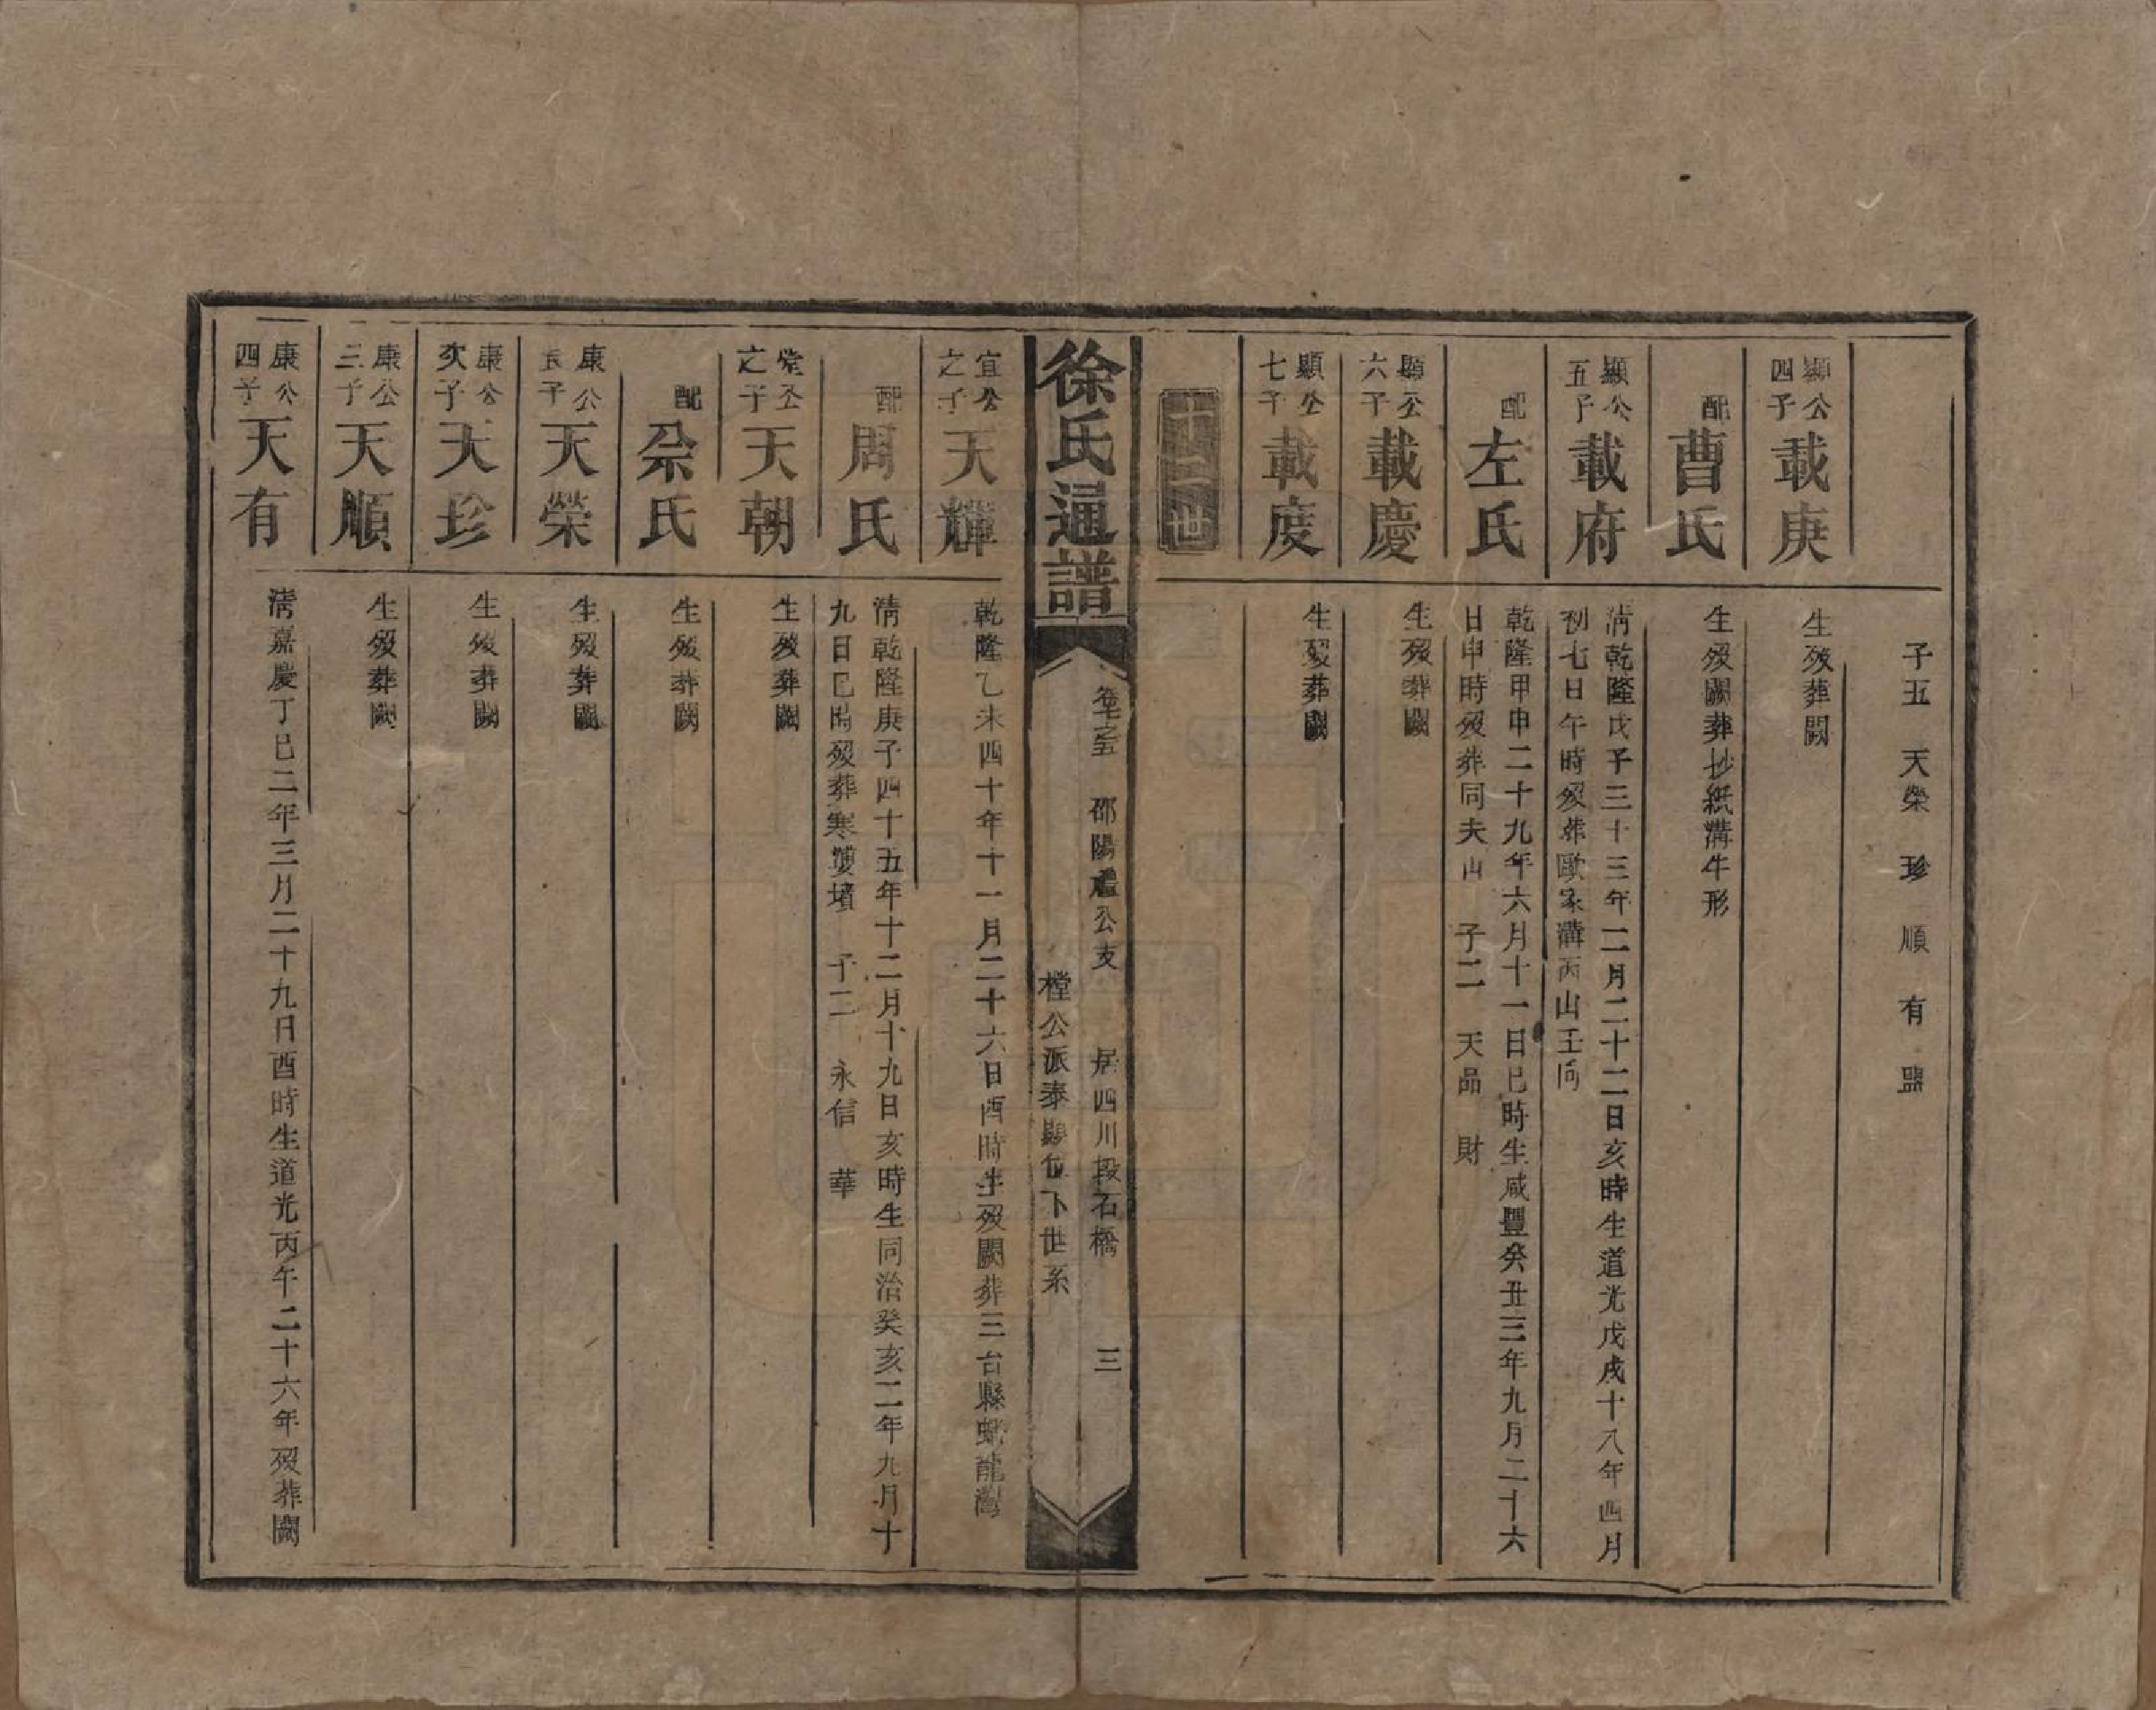 子五 天榮 珍 順 有 㿝
顯公四子 載庚 生歿葬闕
配 曹氏 生歿闕葬抄紙溝牛形
顯公五子 載府 清乾隆戊子三十三年二月二十二日亥時生道光戊戌十八年四月
初七日午時歿葬歐家溝丙山壬向
配 左氏 乾隆甲申二十九年六月十一日巳時生咸豐癸丑三年九月二十六
日申時歿葬同夫山 子二 天品 財
顯公六子 載慶 生歿葬闕
顯公七子 載度 生歿葬闕
十二世
徐氏通譜 卷七之五 邵陽 公支 居四川段石橋 三
樘公派泰顯位下世系
宜公之子 天輝 乾隆乙未四十年十一月二十六日酉時生歿闕葬三台縣 龍灣
配 周氏 清乾隆庚子四十五年十二月十九日亥時生同治癸亥二年九月十
九日巳時歿葬寒婆墳 子二 永信 華
堂公之子 天朝 生歿葬闕
配 余氏 生歿葬闕
康公長子 天榮 生歿葬闕
康公次子 天珍 生歿葬闕
康公三子 天順 生歿葬闕
康公四子 天有 清嘉慶丁巳二年三月二十九日酉時生道光丙午二十六年歿葬闕